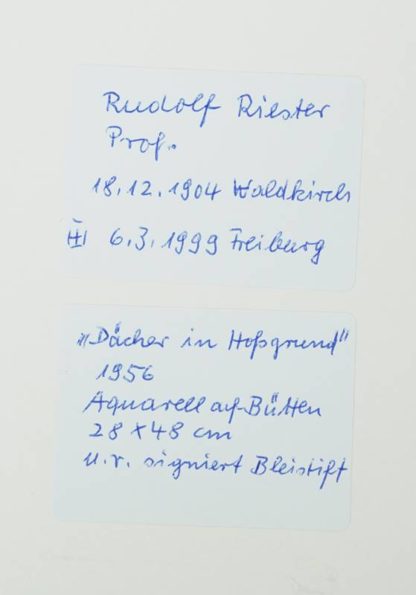 Rudolf Riester
Prof.
18.12.1904 Waldkirch
6.3.1999 Freiburg
"Dächer in Hofsgrund"
1956
Aquarell auf Bütten
28 x 48 cm
u. r. signiert Bleistift